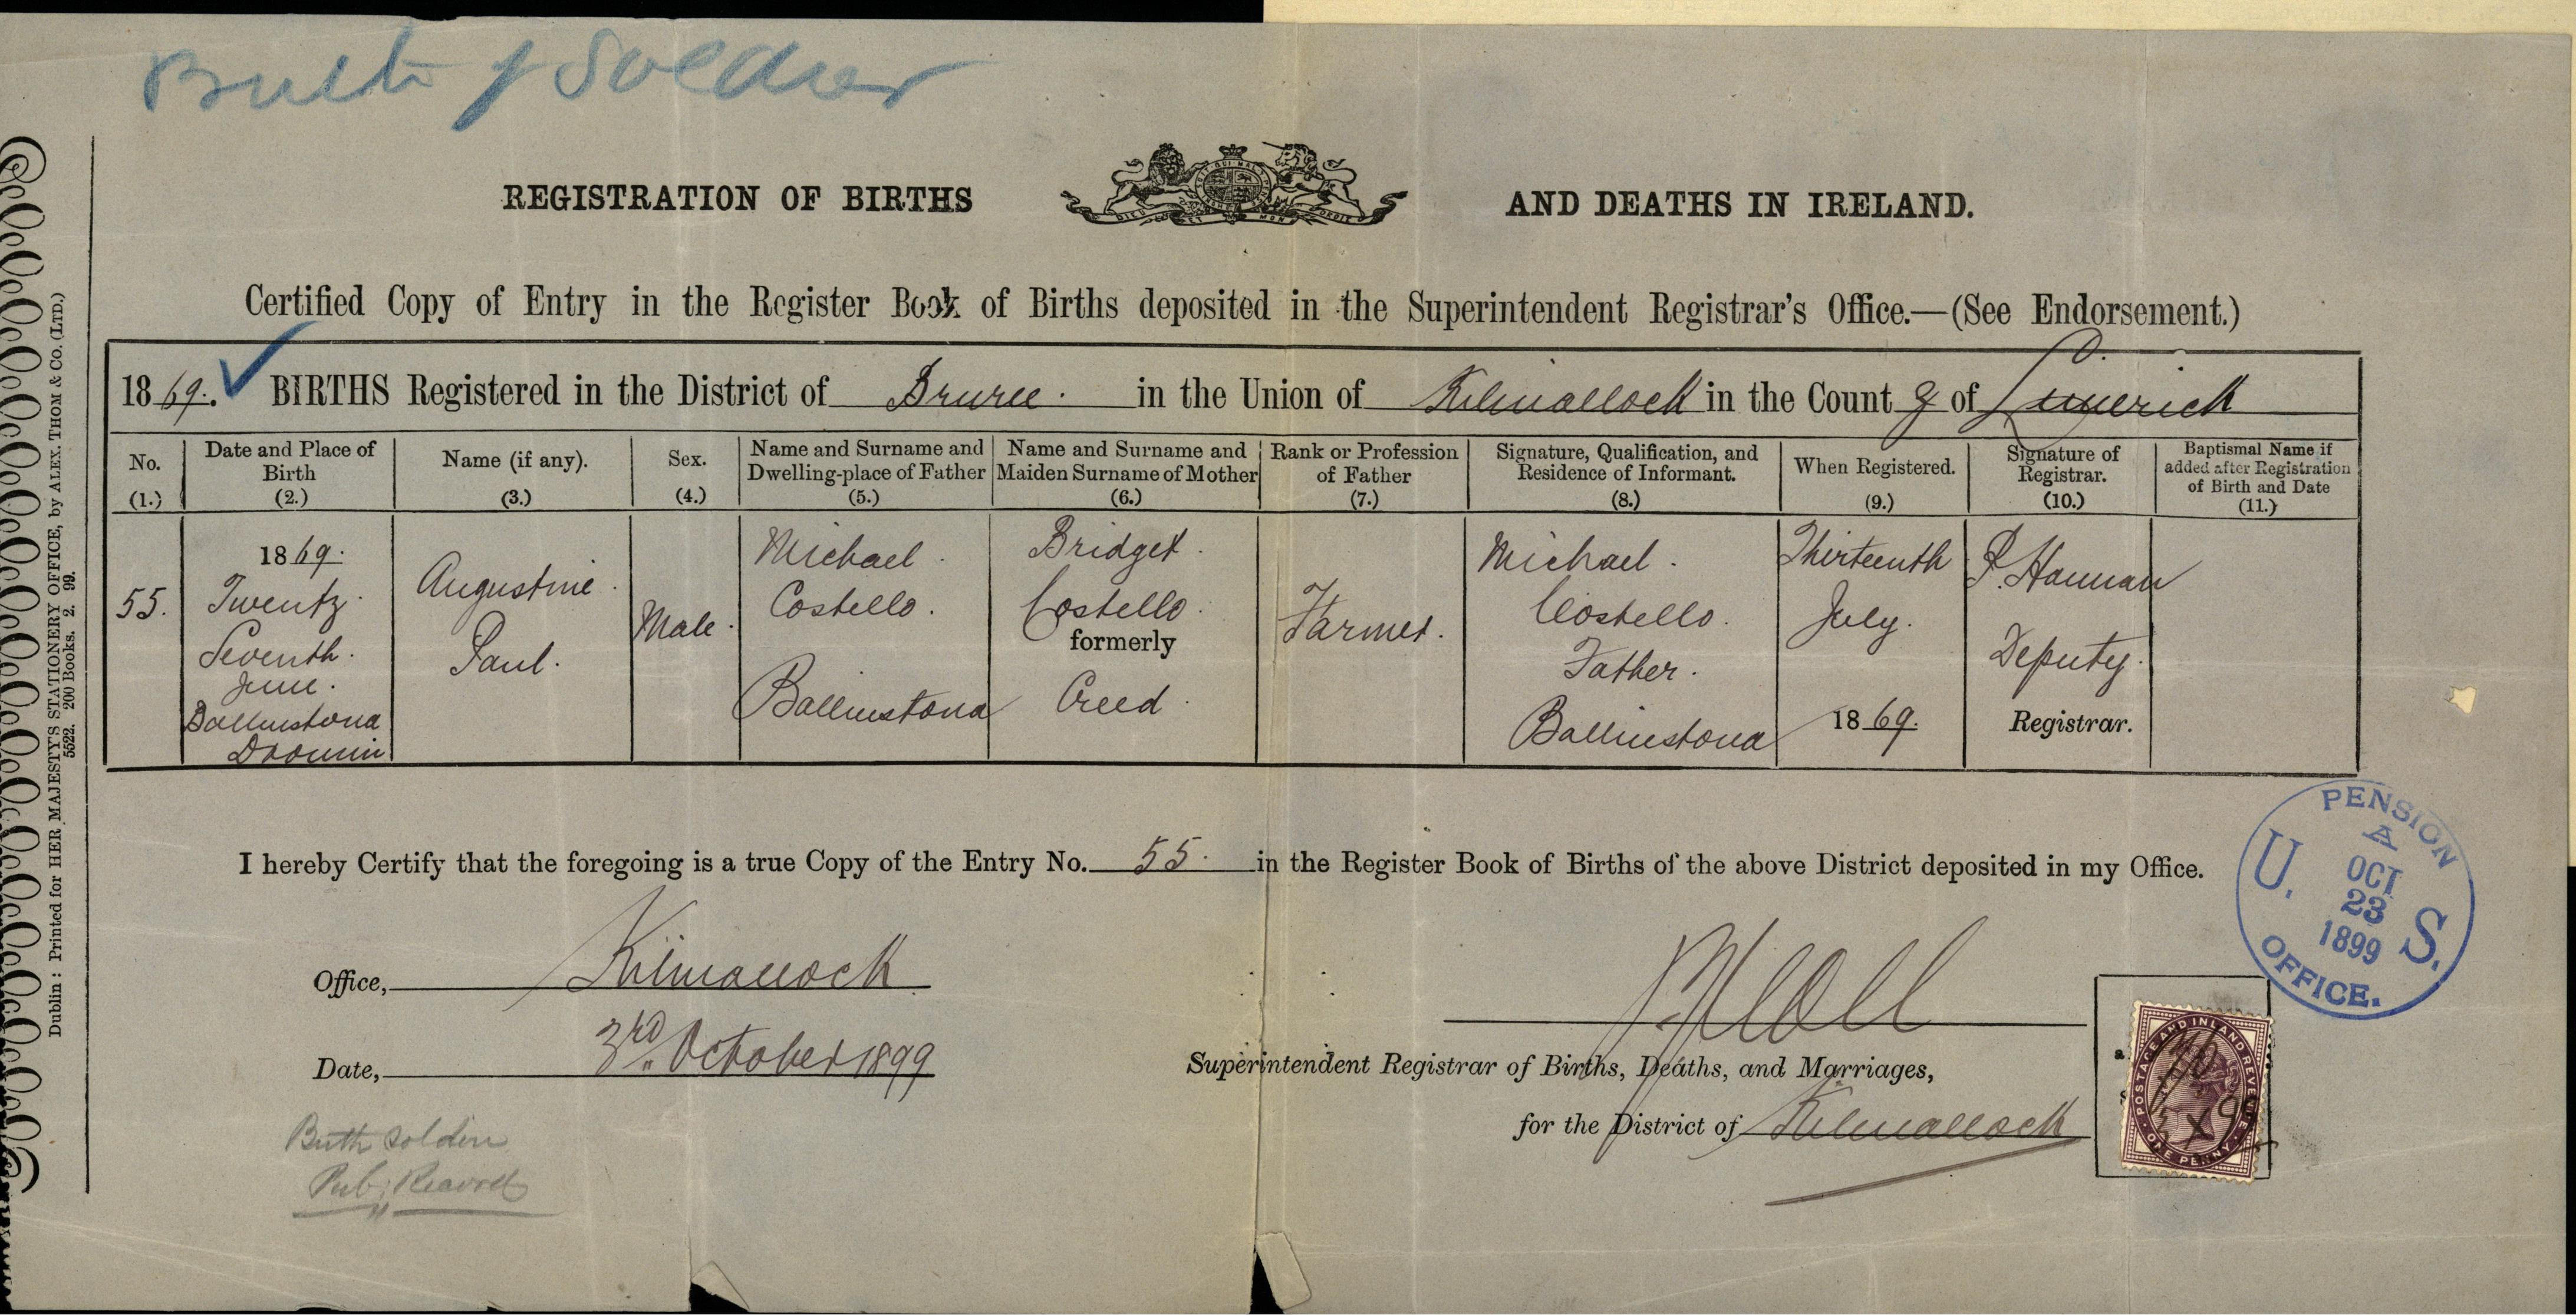 Birth of Soldier
REGISTRATION OF BIRTHS AND DEATHS IN IRELAND.
Certified Copy of Entry in the Register Book of Births deposited in the Superintendent Registrar's Office.—(See Endorsement.)
1869. BIRTHS Registered in the District of Bruree. in the Union of Kilmallock in the County of Limerick
No. (1.)
Date and Place of Birth (2.)
Name (if any). (3.)
Sex. (4.)
Name and Surname and Dwelling-place of Father (5.)
Name and Surname and Maiden Surname of Mother (6.)
Rank or Profession of Father (7.)
Signature, Qualification, and Residence of Informant. (8.)
When Registered. (9.)
Signature of Registrar. (10.)
Baptismal Name if added after Registration of Birth and Date (11.)
55.
1869.
Twenty
Seventh.
June.
Ballinstona
Dromin
Augustine
Paul.
Male.
Michael
Costello.
Ballinstona
Bridget
Costello
formerly
Creed
Farmer.
Michael
Costello.
Father.
Ballinstona
Thirteenth
July.
1869.
P. Hannan
Deputy
Registrar.
I hereby Certify that the foregoing is a true Copy of the Entry No. 55. in the Register Book of Births of the above District deposited in my Office.
Office, Kilmallock
Date, 3rd October 1899
Superintendent Registrar of Births, Deaths, and Marriages,
for the District of Kilmallock
Birth soldier
Pub. Record
U. S. PENSION OFFICE.
A
OCT
23
1899
POSTAGE AND INLAND REVENUE
ONE PENNY
Dublin : Printed for HER MAJESTY'S STATIONERY OFFICE, by ALEX. THOM & CO. (LTD.)
5522. 200 Books. 2. 99.